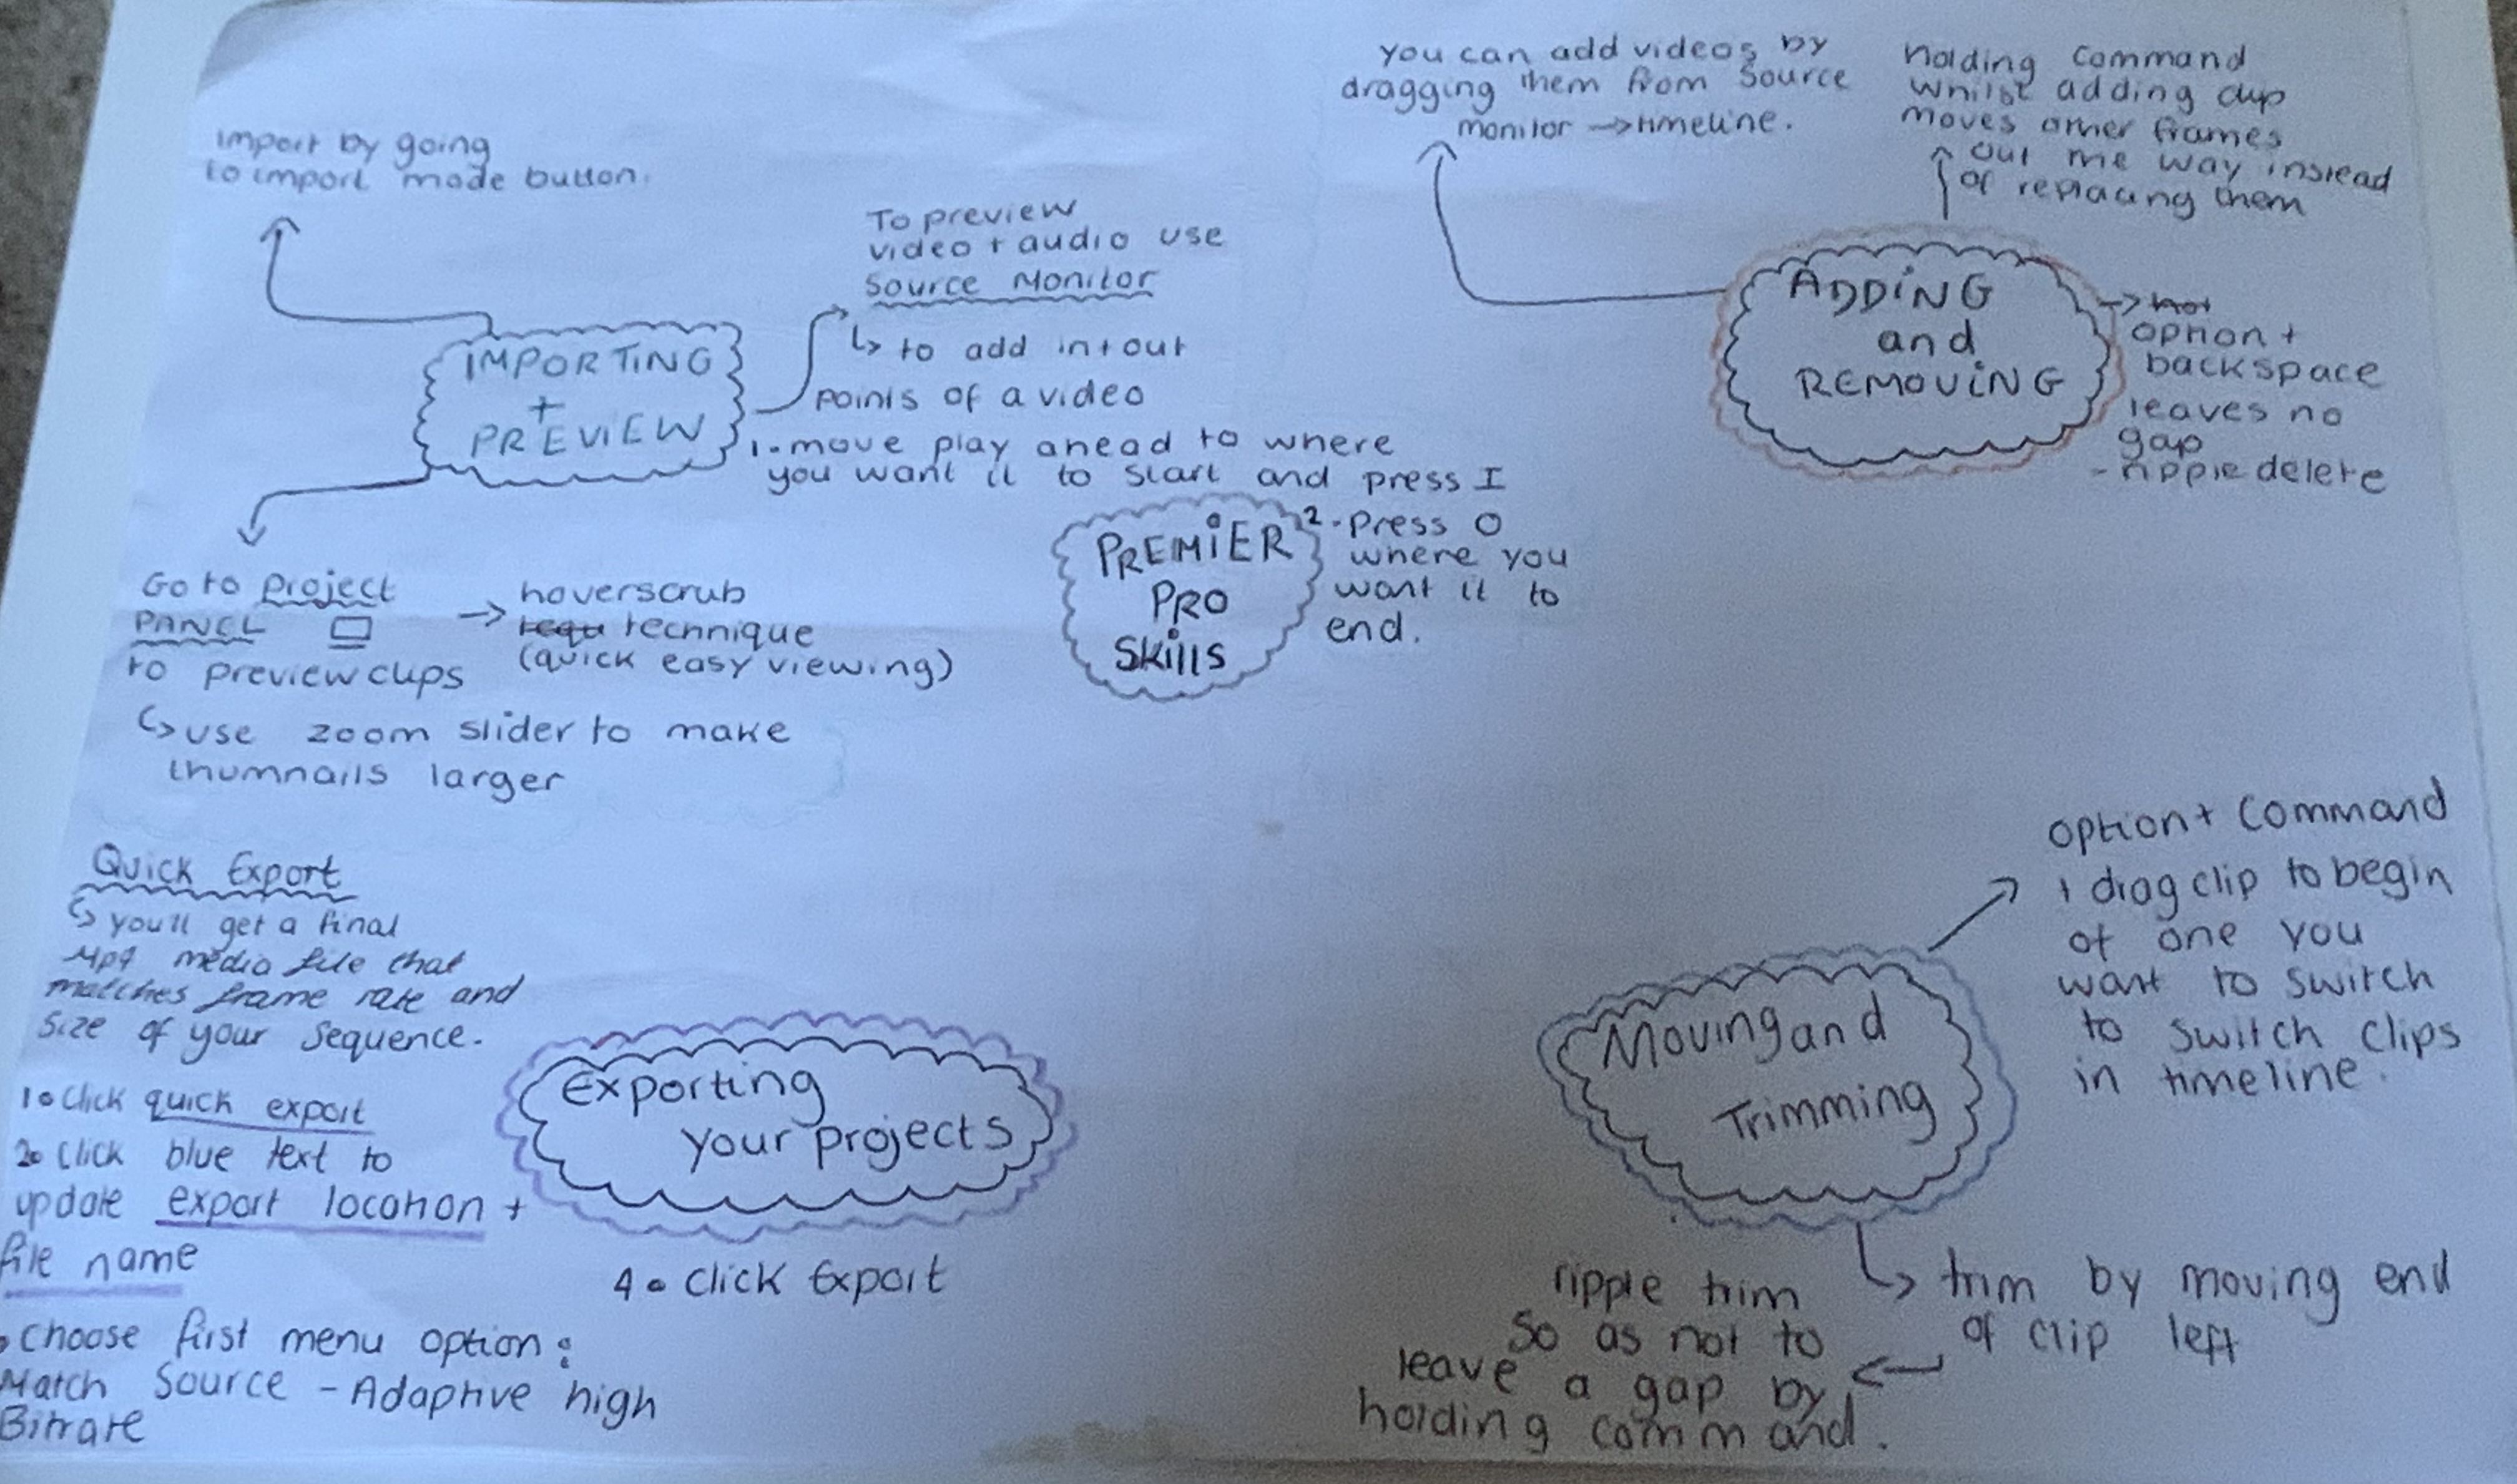 PREMIER
PRO
Skills
IMPORTING
+
PREVIEW
Import by going
to import mode button.
To preview
video + audio use
Source Monitor
↳ to add in + out
points of a video
1. move play ahead to where
you want it to start and press I
2. Press O
where you
want it to
end.
Go to Project
PANEL
to preview clips
→ hoverscrub
technique
(quick easy viewing)
↳ use zoom slider to make
thumnails larger
ADDING
and
REMOVING
you can add videos by
dragging them from source
monitor → timeline.
Holding Command
whilst adding clip
moves other frames
out the way instead
of replacing them
→ not
option +
backspace
leaves no
gap
- ripple delete
Exporting
your projects
Quick Export
↳ you'll get a final
Mp4 media file that
matches frame rate and
size of your sequence.
1. Click quick export
2. Click blue text to
update export location +
file name
. Choose first menu option:
Match Source - Adaptive high
Bitrate
4. Click Export
Moving and
Trimming
option + Command
+ drag clip to begin
of one you
want to switch
to switch clips
in timeline.
↳ trim by moving end
of clip left
ripple trim
so as not to
leave a gap by
holding command.